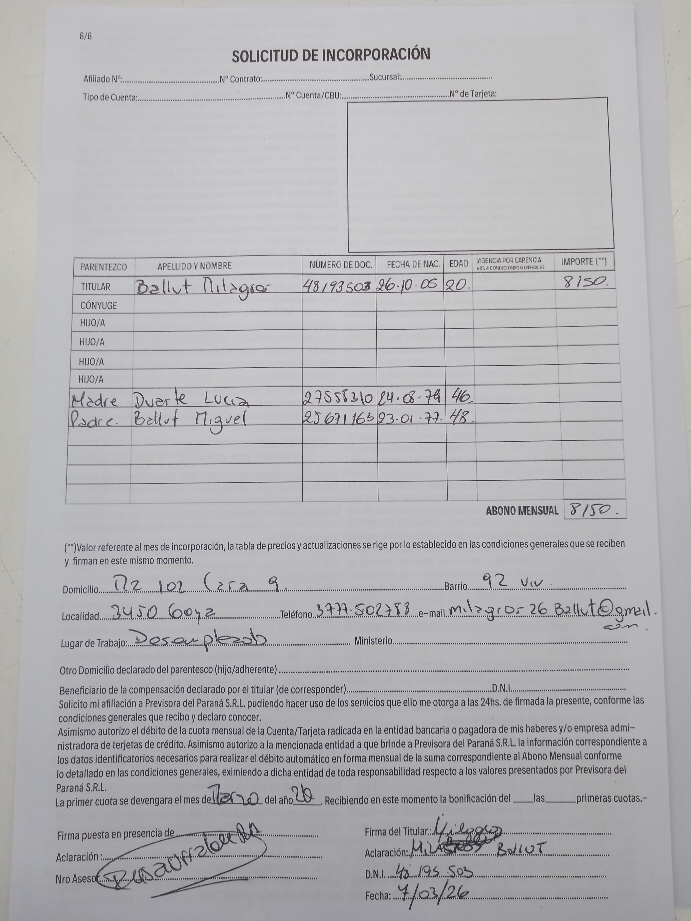 6/6
SOLICITUD DE INCORPORACIÓN
Afiliado Nº: Nº Contrato: Sucursal:
Tipo de Cuenta: Nº Cuenta/CBU: Nº de Tarjeta:
PARENTEZCO APELLIDO Y NOMBRE NUMERO DE DOC. FECHA DE NAC. EDAD VIGENCIA POR CARENCIA IMPORTE (**)
TITULAR Ballut Milagros 48193503 26-10-05 20. 8150.
CÓNYUGE
HIJO/A
HIJO/A
HIJO/A
HIJO/A
Madre Duarte Lucia 27558310 24-08-79 46
Padre. Ballut Miguel 25671163 23-01-77. 48.
ABONO MENSUAL 8150.
(**)Valor referente al mes de incorporación, la tabla de precios y actualizaciones se rige por lo establecido en las condiciones generales que se reciben
y firman en este mismo momento.
Domicilio Mz 101 Casa 9 Barrio 92 viv.
Localidad 3450 Goya Teléfono 3777-502788 e-mail milagros26Ballut@gmail.
com.
Lugar de Trabajo: Desempleado Ministerio
Otro Domicilio declarado del parentesco (hijo/adherente)
Beneficiario de la compensación declarado por el titular (de corresponder) D.N.I.
Solicito mi afiliación a Previsora del Paraná S.R.L. pudiendo hacer uso de los servicios que ello me otorga a las 24hs. de firmada la presente, conforme las
condiciones generales que recibo y declaro conocer.
Asimismo autorizo el débito de la cuota mensual de la Cuenta/Tarjeta radicada en la entidad bancaria o pagadora de mis haberes y/o empresa admi-
nistradora de terjetas de crédito. Asimismo autorizo a la mencionada entidad a que brinde a Previsora del Paraná S.R.L. la información correspondiente a
los datos identificatorios necesarios para realizar el débito automático en forma mensual de la suma correspondiente al Abono Mensual conforme
lo detallado en las condiciones generales, eximiendo a dicha entidad de toda responsabilidad respecto a los valores presentados por Previsora del
Paraná S.R.L.
La primer cuota se devengara el mes de Marzo del año 26. Recibiendo en este momento la bonificación del ____las____ primeras cuotas.-
Firma puesta en presencia de Firma del Titular: Milagros
Aclaración: Aclaración: MILAGROS BALLUT
Nro Asesor D.N.I. 48 193 503
Fecha: 7/03/26